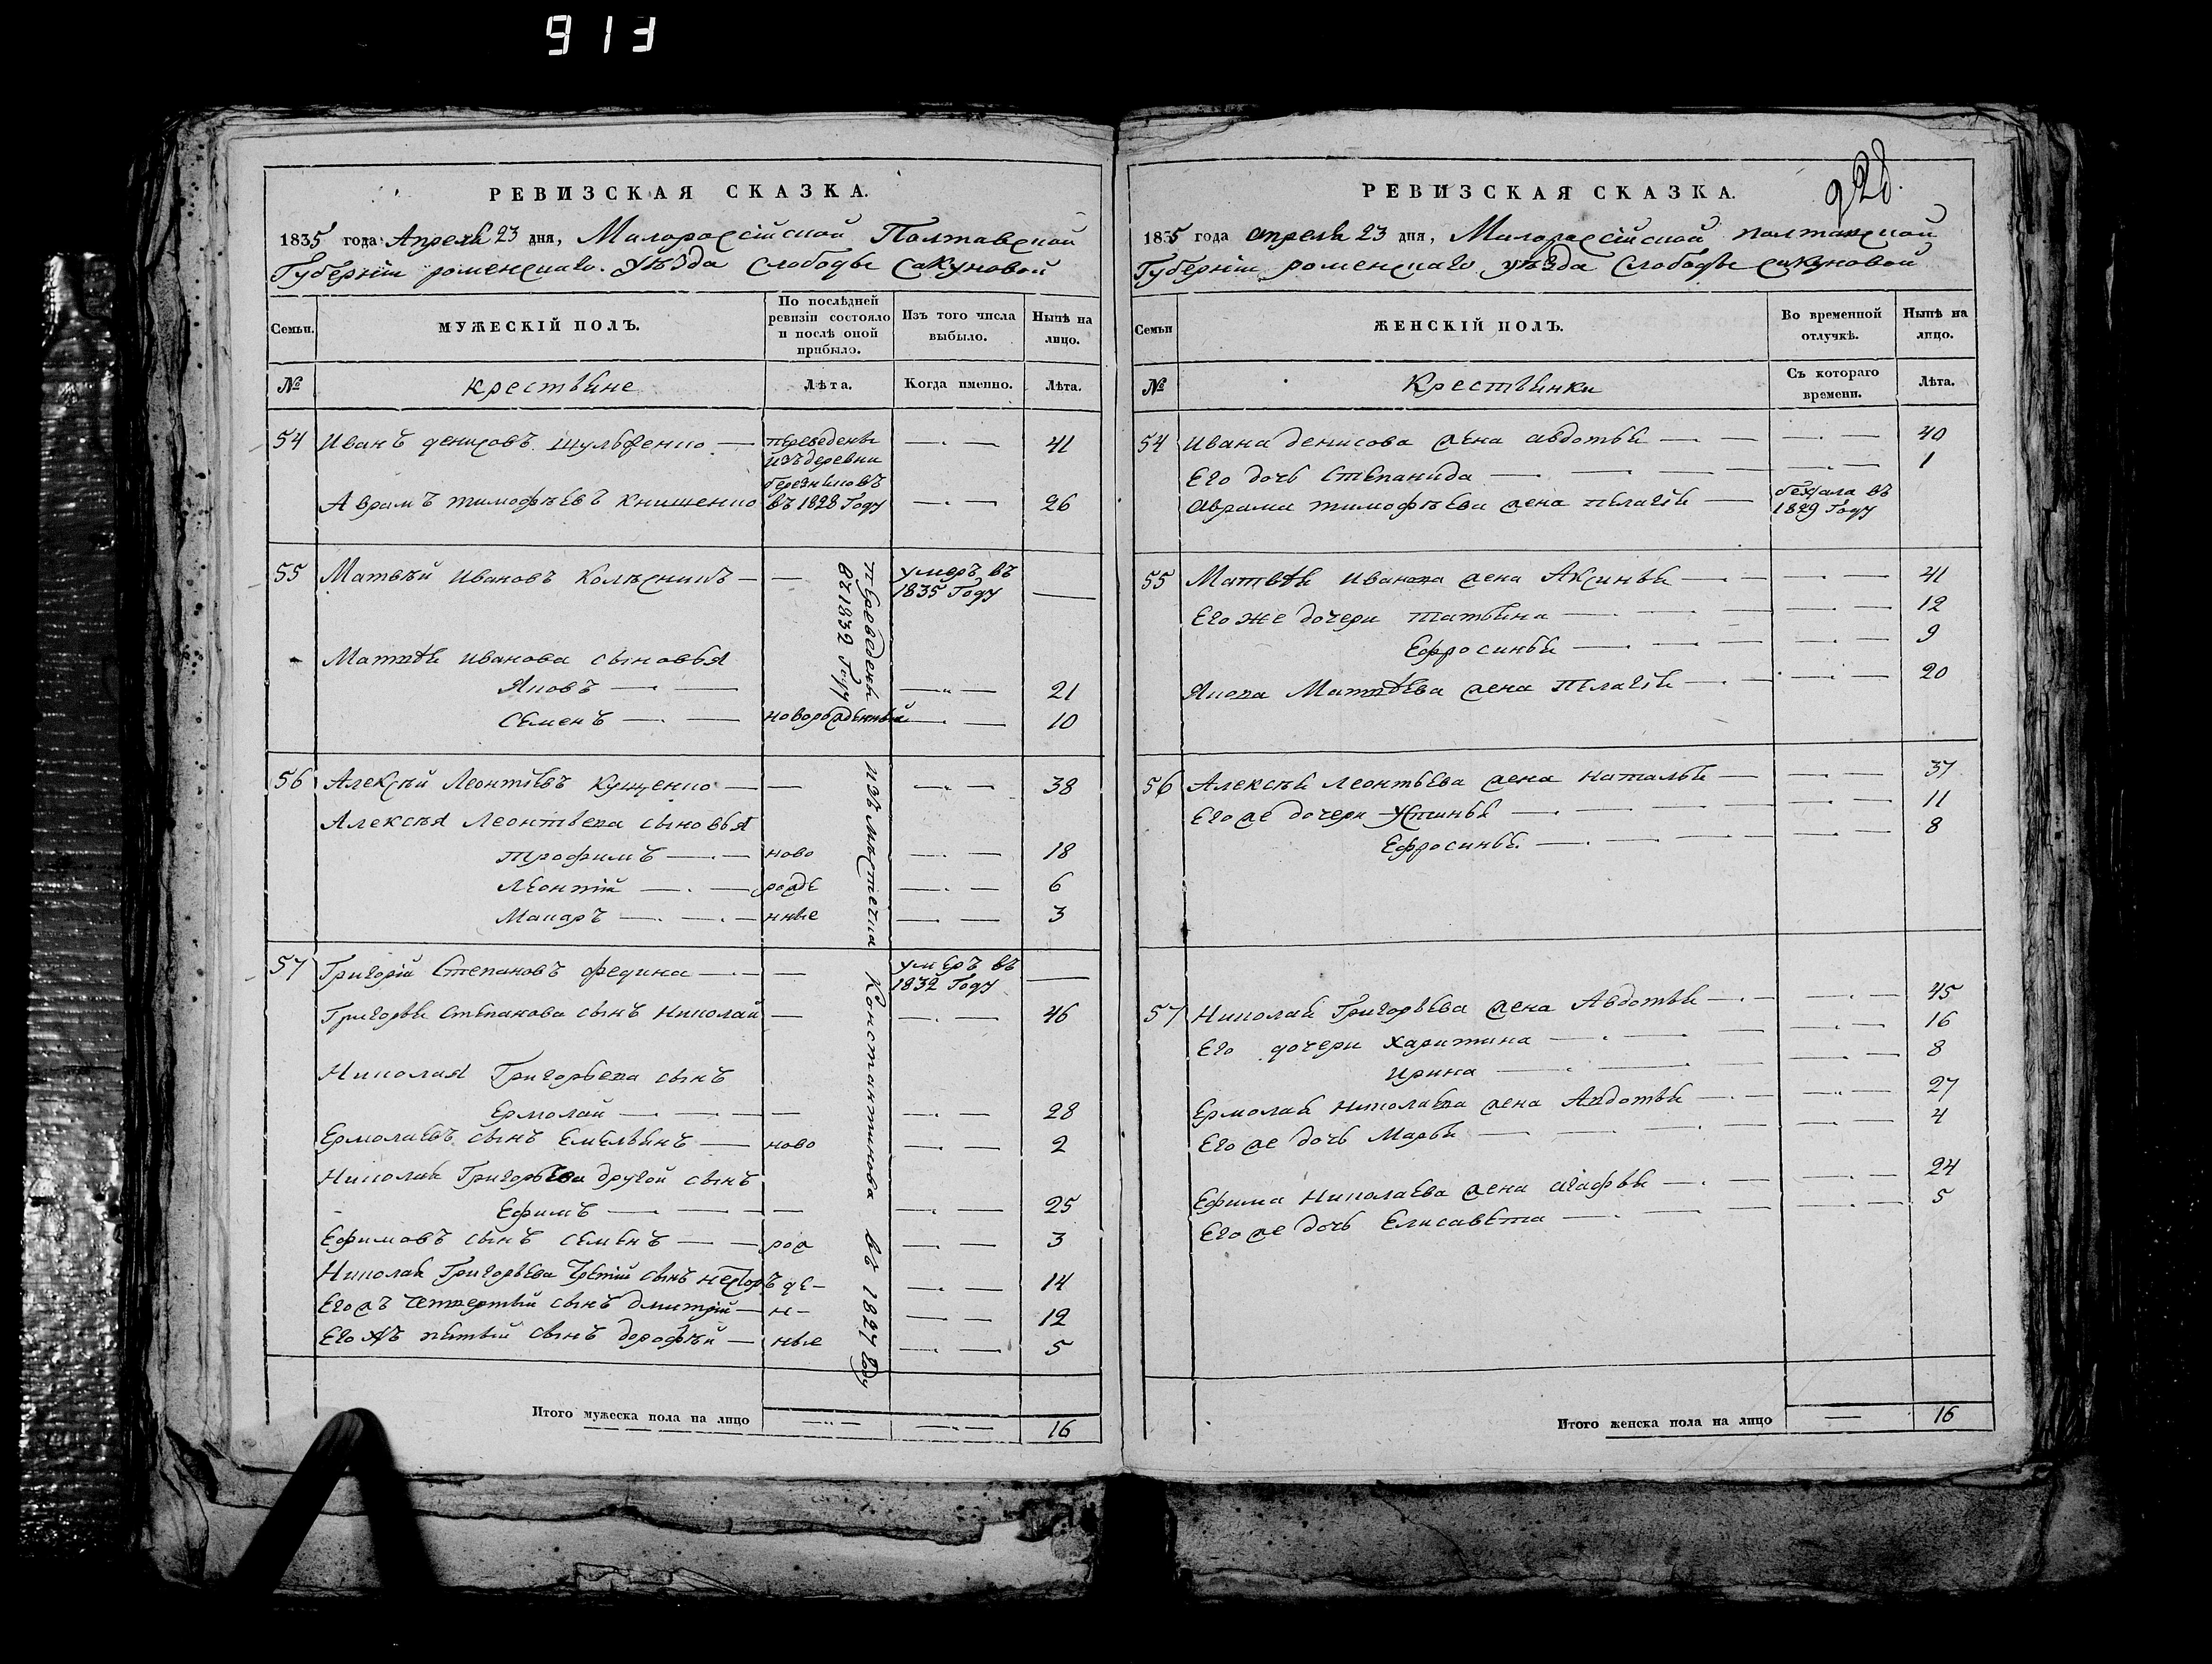 913
РЕВИЗСКАЯ СКАЗКА.
1835 года Апреля 23 дня, Малороссійской Полтавской
Губерніи роменскаго уѣзда слободы сакуновой
Семьи.
МУЖЕСКІЙ ПОЛЪ.
По послѣдней
ревизіи состояло
и послѣ оной
прибыло.
Изъ того числа
выбыло.
Нынѣ на
лицо.
№
крестьяне
Лѣта.
Когда именно.
Лѣта.
54 Иванъ денисовъ — переведены — 41
изъ деревни
Аврамъ тимофѣевъ книшенко въ 1828 Году — 26
55 Матвѣй Ивановъ Колѣсникъ — — умеръ въ
1835 Году —
Матвѣя Иванова сыновья
Яковъ — — — 21
Семенъ — — новорожденный — 10
переведены
въ 1832 Году
56 Алексѣй Леонтіевъ Кущенко — — — 38
Алексѣя Леонтьева сыновья
трофимъ — ново — 18
Леонтій — рожде — 6
Макаръ — нные — 3
57 Григорій Степановъ федина — — умеръ въ
1832 Году —
Григорья Степанова сынъ Николай — — 46
Николая Григорьева сынъ
Ермолай — — — 28
Ермолаевъ сынъ Емельянъ — ново — 2
Николая Григорьева другой сынъ
Ефимъ — — — 25
Ефимовъ сынъ Семенъ — рож — 3
Николая Григорьева третій сынъ несторъ де — 14
Его жъ четвертый сынъ дмитрій — н — 12
Его жъ пятый сынъ дорофѣй — ные — 5
изъ мѣстечка Константинова въ 1827 году
Итого мужеска пола на лицо — — 16
928.
РЕВИЗСКАЯ СКАЗКА.
1835 года апреля 23 дня, Малороссійской полтавской
Губерніи роменскаго уѣзда слободы сакуновой
Семьи
ЖЕНСКІЙ ПОЛЪ.
Во временной
отлучкѣ.
Нынѣ на
лицо.
№
Крестьянки
Съ котораго
времени.
Лѣта.
54 Ивана денисова жена авдотья — — 40
Его дочь Степанида — — 1
Аврама тимофѣева жена пелагія — бежала въ
1829 Году
55 Матвѣя Иванова жена Аксинья — — 41
Его же дочери татьяна — — 12
Ефросинья — — 9
Якова Матвѣева жена пелагія — — 20
56 Алексѣя Леонтьева жена наталья — — 37
Его же дочери Устинья — — 11
Ефросинья — — 8
57 Николая Григорьева жена Авдотья — — 45
Его дочери Харитина — — 16
Ирина — — 8
Ермолая Николаева жена Авдотья — — 27
Его же дочь Марья — — 4
Ефима Николаева жена агафья — — 24
Его же дочь Елисавета — — 5
Итого женска пола на лицо — 16